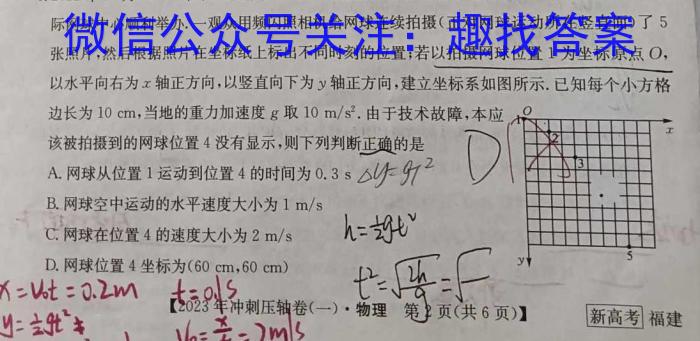 微信公众号关注：趣找答案
张照片,然后根据照片在坐标纸上标出不同时刻的位置;若以拍摄网球位置1为坐标原点O,
以水平向右为x轴正方向,以竖直向下为y轴正方向,建立坐标系如图所示.已知每个小方格
边长为10 cm,当地的重力加速度g取10 m/s².由于技术故障,本应
该被拍摄到的网球位置4没有显示,则下列判断正确的是
A.网球从位置1运动到位置4的时间为0.3 s
Δy=gT²
D
B.网球空中运动的水平速度大小为1 m/s
C.网球在位置4的速度大小为2 m/s
h=½gt²
D.网球位置4坐标为(60 cm,60 cm)
1 O x
2
3
5
y
x=v₀t=0.2m t=0.1s
t²=√2h/g=√
【2023年冲刺压轴卷(一)·物理 第2页(共6页)】
新高考 福建
y=½gt²
v₀=x/t=2m/s